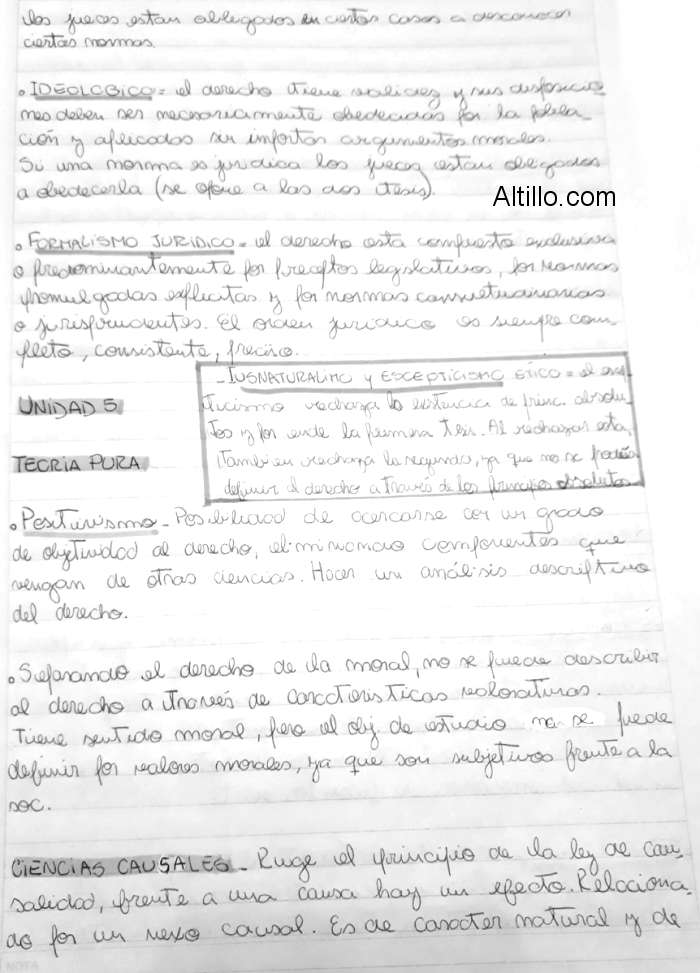 los jueces estan obligados en ciertos casos a desconocer
ciertas normas.
• IDEOLOGICO = el derecho tiene validez y sus disposicio
nes deben ser necesariamente obedecidas por la pobla_
ción y aplicados sin importar argumentos morales.
Si una norma es juridica los jueces estan obligados
a obedecerla (se opone a las dos tesis).
Altillo.com
• FORMALISMO JURIDICO = el derecho esta compuesto exclusiva
o predominantemente por preceptos legislativos, por normas
promulgadas explicitas y por normas consuetudinarias
o jurisprudentes. El orden juridico es siempre com_
pleto, consistente, preciso.
- IUSNATURALIMO y ESCEPTICISMO ÉTICO = el esc
pticismo rechaza la existencia de princ. absolu_
tos y por ende la primera tesis. Al rechazar esta,
tambien rechaza la segunda, ya que no se podria
definir el derecho a través de los principios absolutos
UNIDAD 5
TEORIA PURA
• Positivismo - Posibilidad de acercarse con un grado
de objetividad al derecho, eliminando componentes que
vengan de otras ciencias. Hacer un análisis descriptivo
del derecho.
• Separando el derecho de la moral, no se puede describir
al derecho a través de caracteristicas valorativas.
Tiene sentido moral, pero el obj. de estudio no se puede
definir por valores morales, ya que son subjetivos frente a la
soc.
CIENCIAS CAUSALES - Ruge el principio de la ley de cau_
salidad, frente a una causa hay un efecto. Relaciona_
do por un nexo causal. Es de caracter natural y de